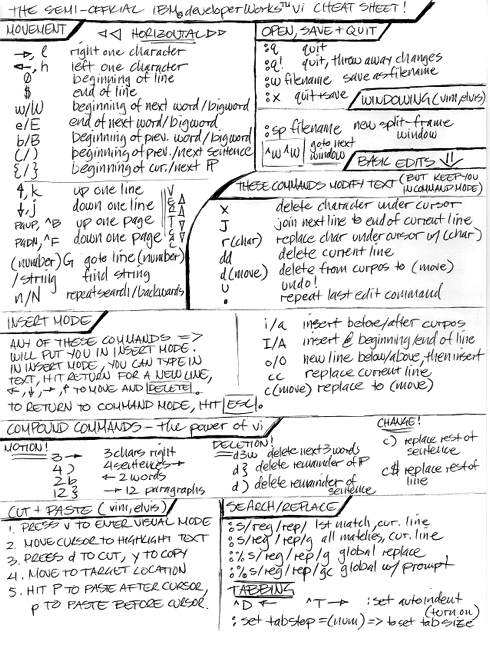 THE SEMI-OFFICIAL IBM developerWorks™ vi CHEAT SHEET!
MOVEMENT
<< HORIZONTAL >>
→, l right one character
←, h left one character
0 beginning of line
$ end of line
w/W beginning of next word/bigword
e/E end of next word/bigword
b/B beginning of prev. word/bigword
(/) beginning of prev./next sentence
{/} beginning of cur./next ¶
↑, k up one line
↓, j down one line
PGUP, ^B up one page
PGDN, ^F down one page
VERTICAL
(number)G goto line (number)
/string find string
n/N repeat search/backwards
OPEN, SAVE + QUIT
:q quit
:q! quit, throw away changes
:w filename save as filename
:x quit+save
WINDOWING (vim, elvis)
:sp filename new split-frame
window
^W^W goto next
window
BASIC EDITS
THESE COMMANDS MODIFY TEXT (BUT KEEP YOU
IN COMMAND MODE)
x delete character under cursor
J join next line to end of current line
r(char) replace char under cursor w/(char)
dd delete current line
d(move) delete from curpos to (move)
u undo!
. repeat last edit command
INSERT MODE
ANY OF THESE COMMANDS =>
WILL PUT YOU IN INSERT MODE.
IN INSERT MODE, YOU CAN TYPE IN
TEXT, HIT RETURN FOR A NEW LINE,
←, ↓, →, ↑ TO MOVE AND DELETE.
TO RETURN TO COMMAND MODE, HIT ESC.
i/a insert before/after curpos
I/A insert @ beginning/end of line
o/O new line below/above, then insert
cc replace current line
c(move) replace to (move)
COMPOUND COMMANDS – the power of vi
MOTION!
3→ 3 chars right
4) 4 sentences →
2b ← 2 words
12} → 12 paragraphs
DELETION!
d3w delete next 3 words
d} delete remainder of ¶
d) delete remainder of
sentence
CHANGE!
c) replace rest of
sentence
c$ replace rest of
line
CUT + PASTE (vim, elvis)
1. PRESS v TO ENTER VISUAL MODE
2. MOVE CURSOR TO HIGHLIGHT TEXT
3. PRESS d TO CUT, y TO COPY
4. MOVE TO TARGET LOCATION
5. HIT P TO PASTE AFTER CURSOR,
p TO PASTE BEFORE CURSOR.
SEARCH/REPLACE
:s/reg/rep/ 1st match, cur. line
:s/reg/rep/g all matches, cur. line
:%s/reg/rep/g global replace
:%s/reg/rep/gc global w/ prompt
TABBING
^D ← ^T → :set autoindent
(turn on)
:set tabstop=(num) => to set tab size